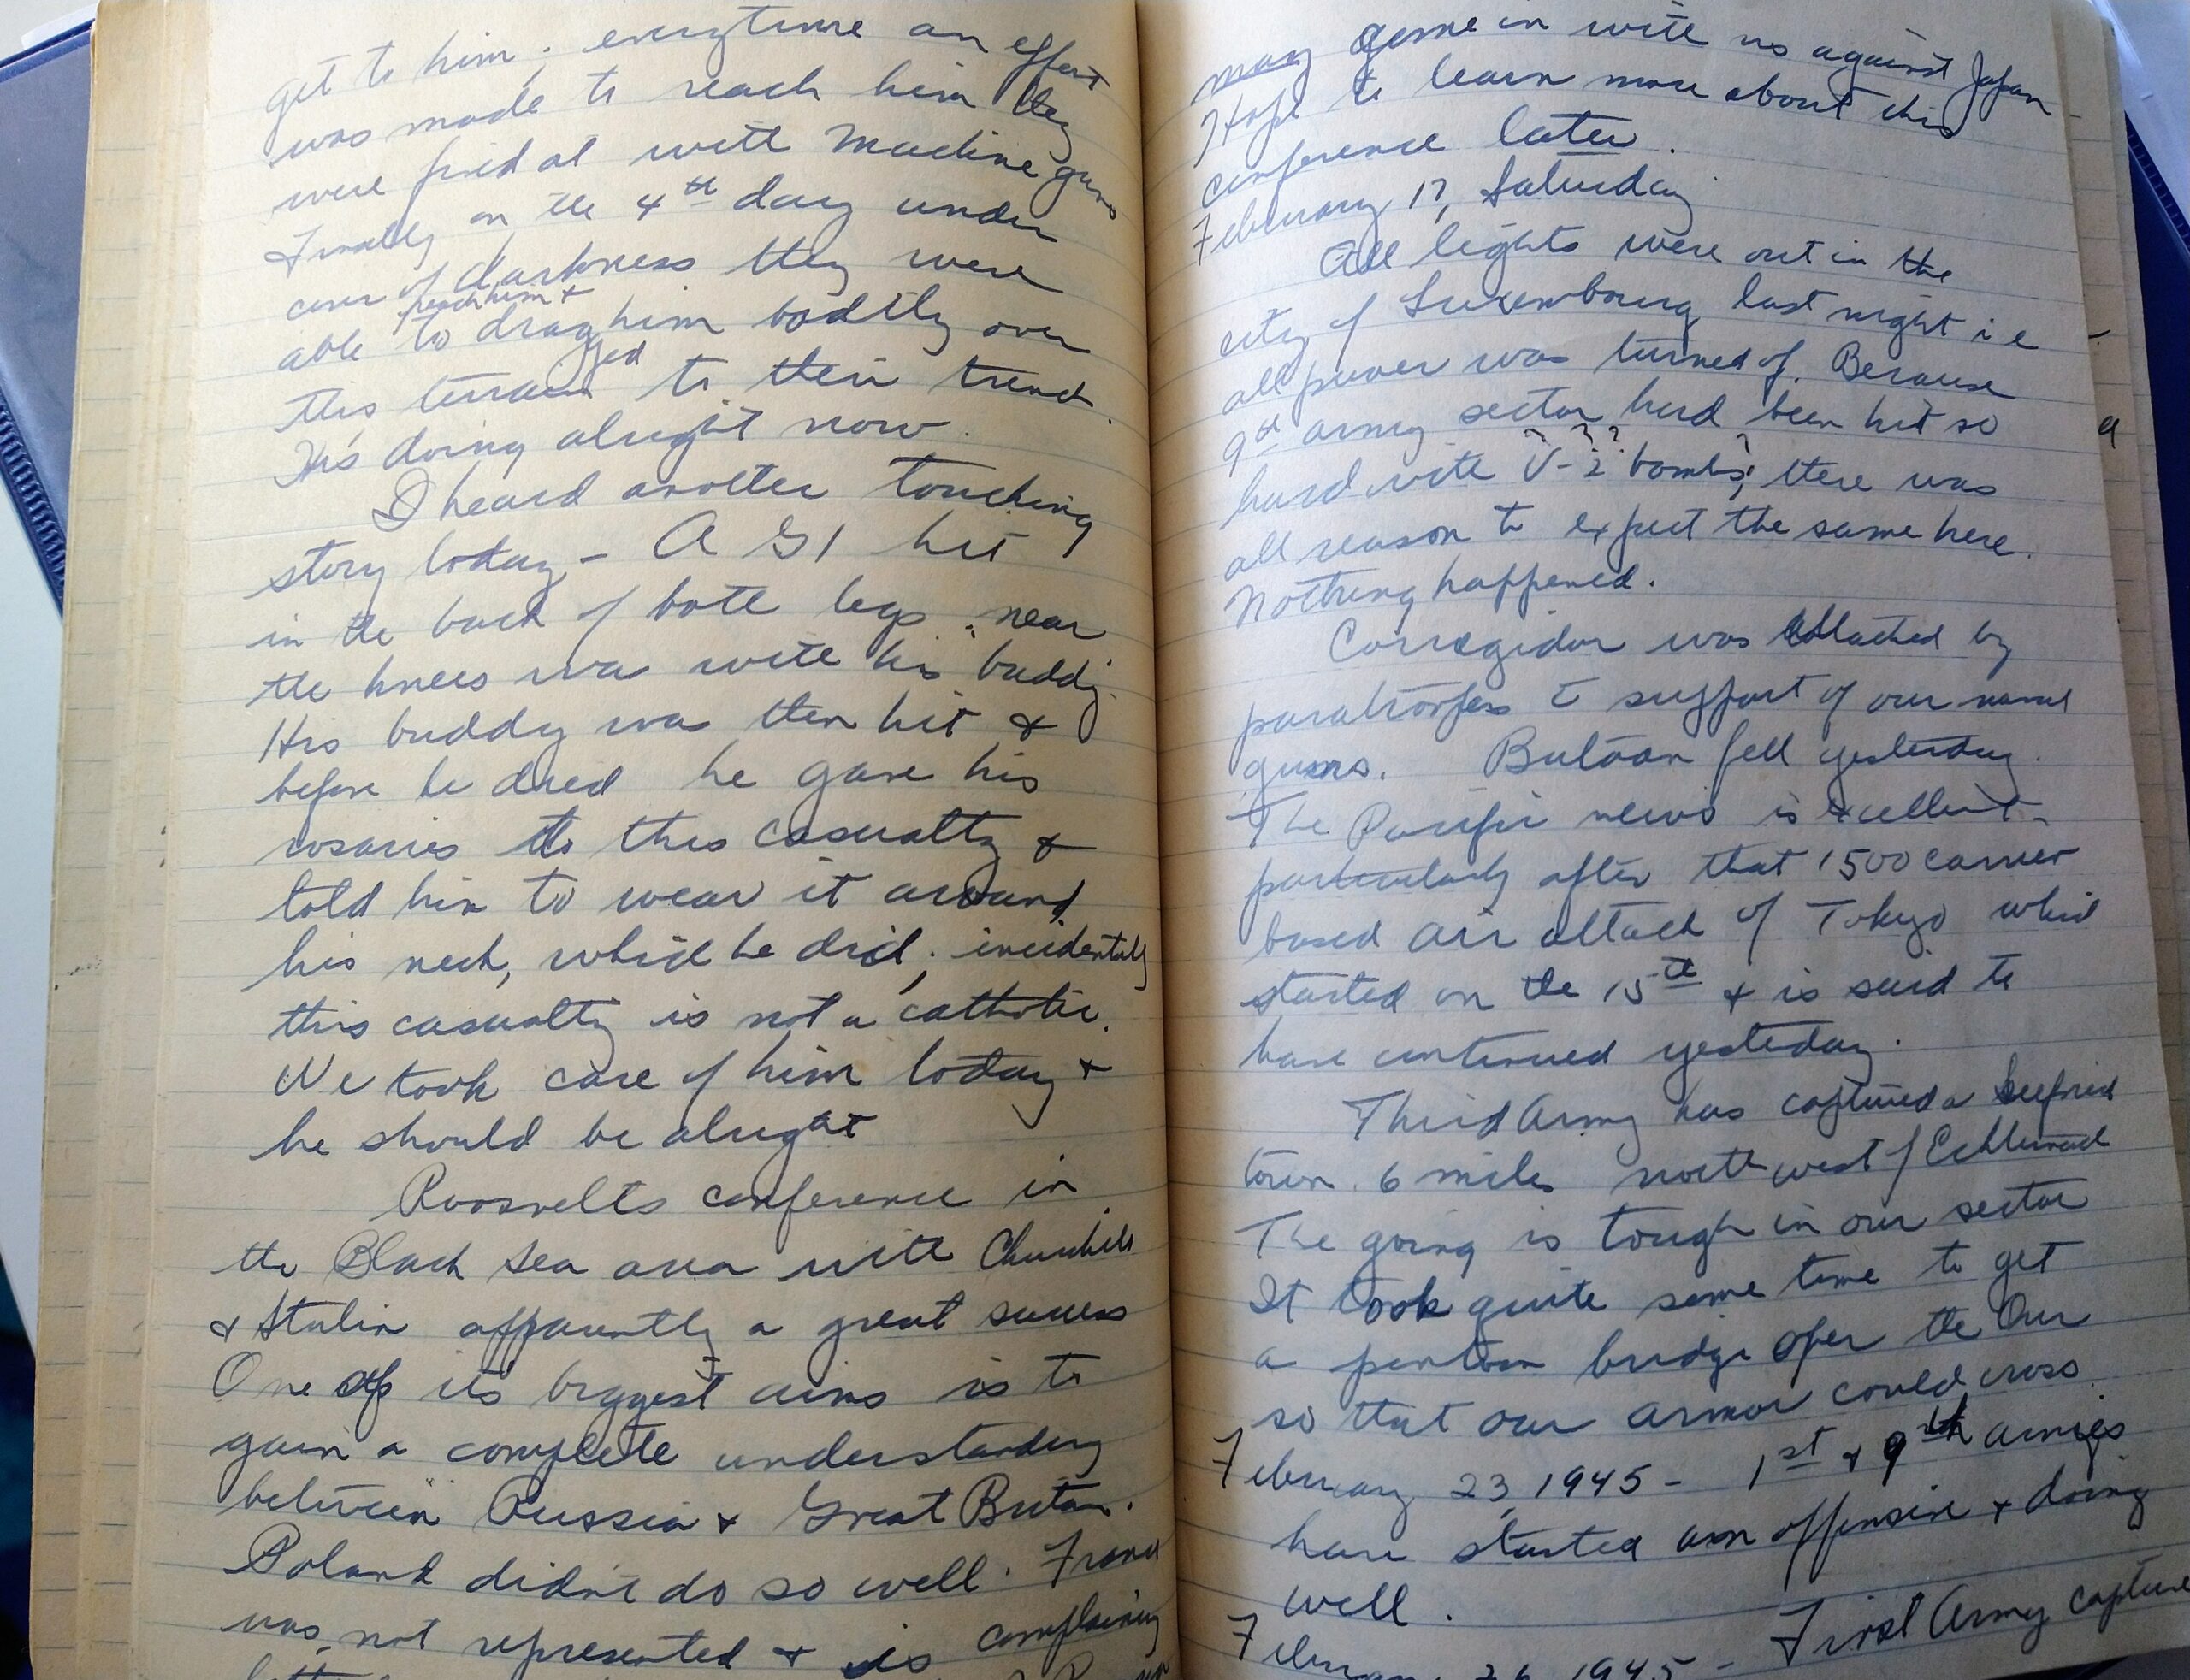 get to him; everytime an effort
was made to reach him they
were fired at with machine guns
Finally on the 4th day under
cover of darkness they were
reach him +
able to dragged him bodily over
this terrain to their trench.
He's doing alright now.
I heard another touching
story today - A GI hit
in the back of both legs near
the knees was with his buddy.
His buddy was then hit &
before he died he gave his
rosaries to this casualty &
told him to wear it around
his neck, which he did; incidentally
this casualty is not a catholic.
We took care of him today +
he should be alright
Roosvelts conference in
the Black Sea area with Churchill
& Stalin apparently a great success
One of its biggest aims is to
gain a complete understanding
between Russia + Great Britain.
Poland didnt do so well. France
was not represented + is complaining
may come in with us against Japan
Hope to learn more about this
conference later.
February 17, Saturday
All lights were out in the
city of Luxembourg last night i e
all power was turned of. Because
9th army sector had been hit so
hard with V-2 bombs, there was
? ? ? ?
all reason to expect the same here.
Nothing happened.
Corregidor was attacked by
paratroopers c̄ support of our naval
guns. Bataan fell yesterday.
The Pacific news is excellent -
particularly after that 1500 carrier
based air attack of Tokyo which
started on the 15th & is said to
have continued yesterday.
Third Army has captured a
town 6 miles northwest of Echternach
The going is tough in our sector
It took quite some time to get
a pontoon bridge over the Our
so that our armor could cross
February 23, 1945 - 1st & 9th armies
have started an offensive + doing
well.
February 26, 1945 - First Army capture